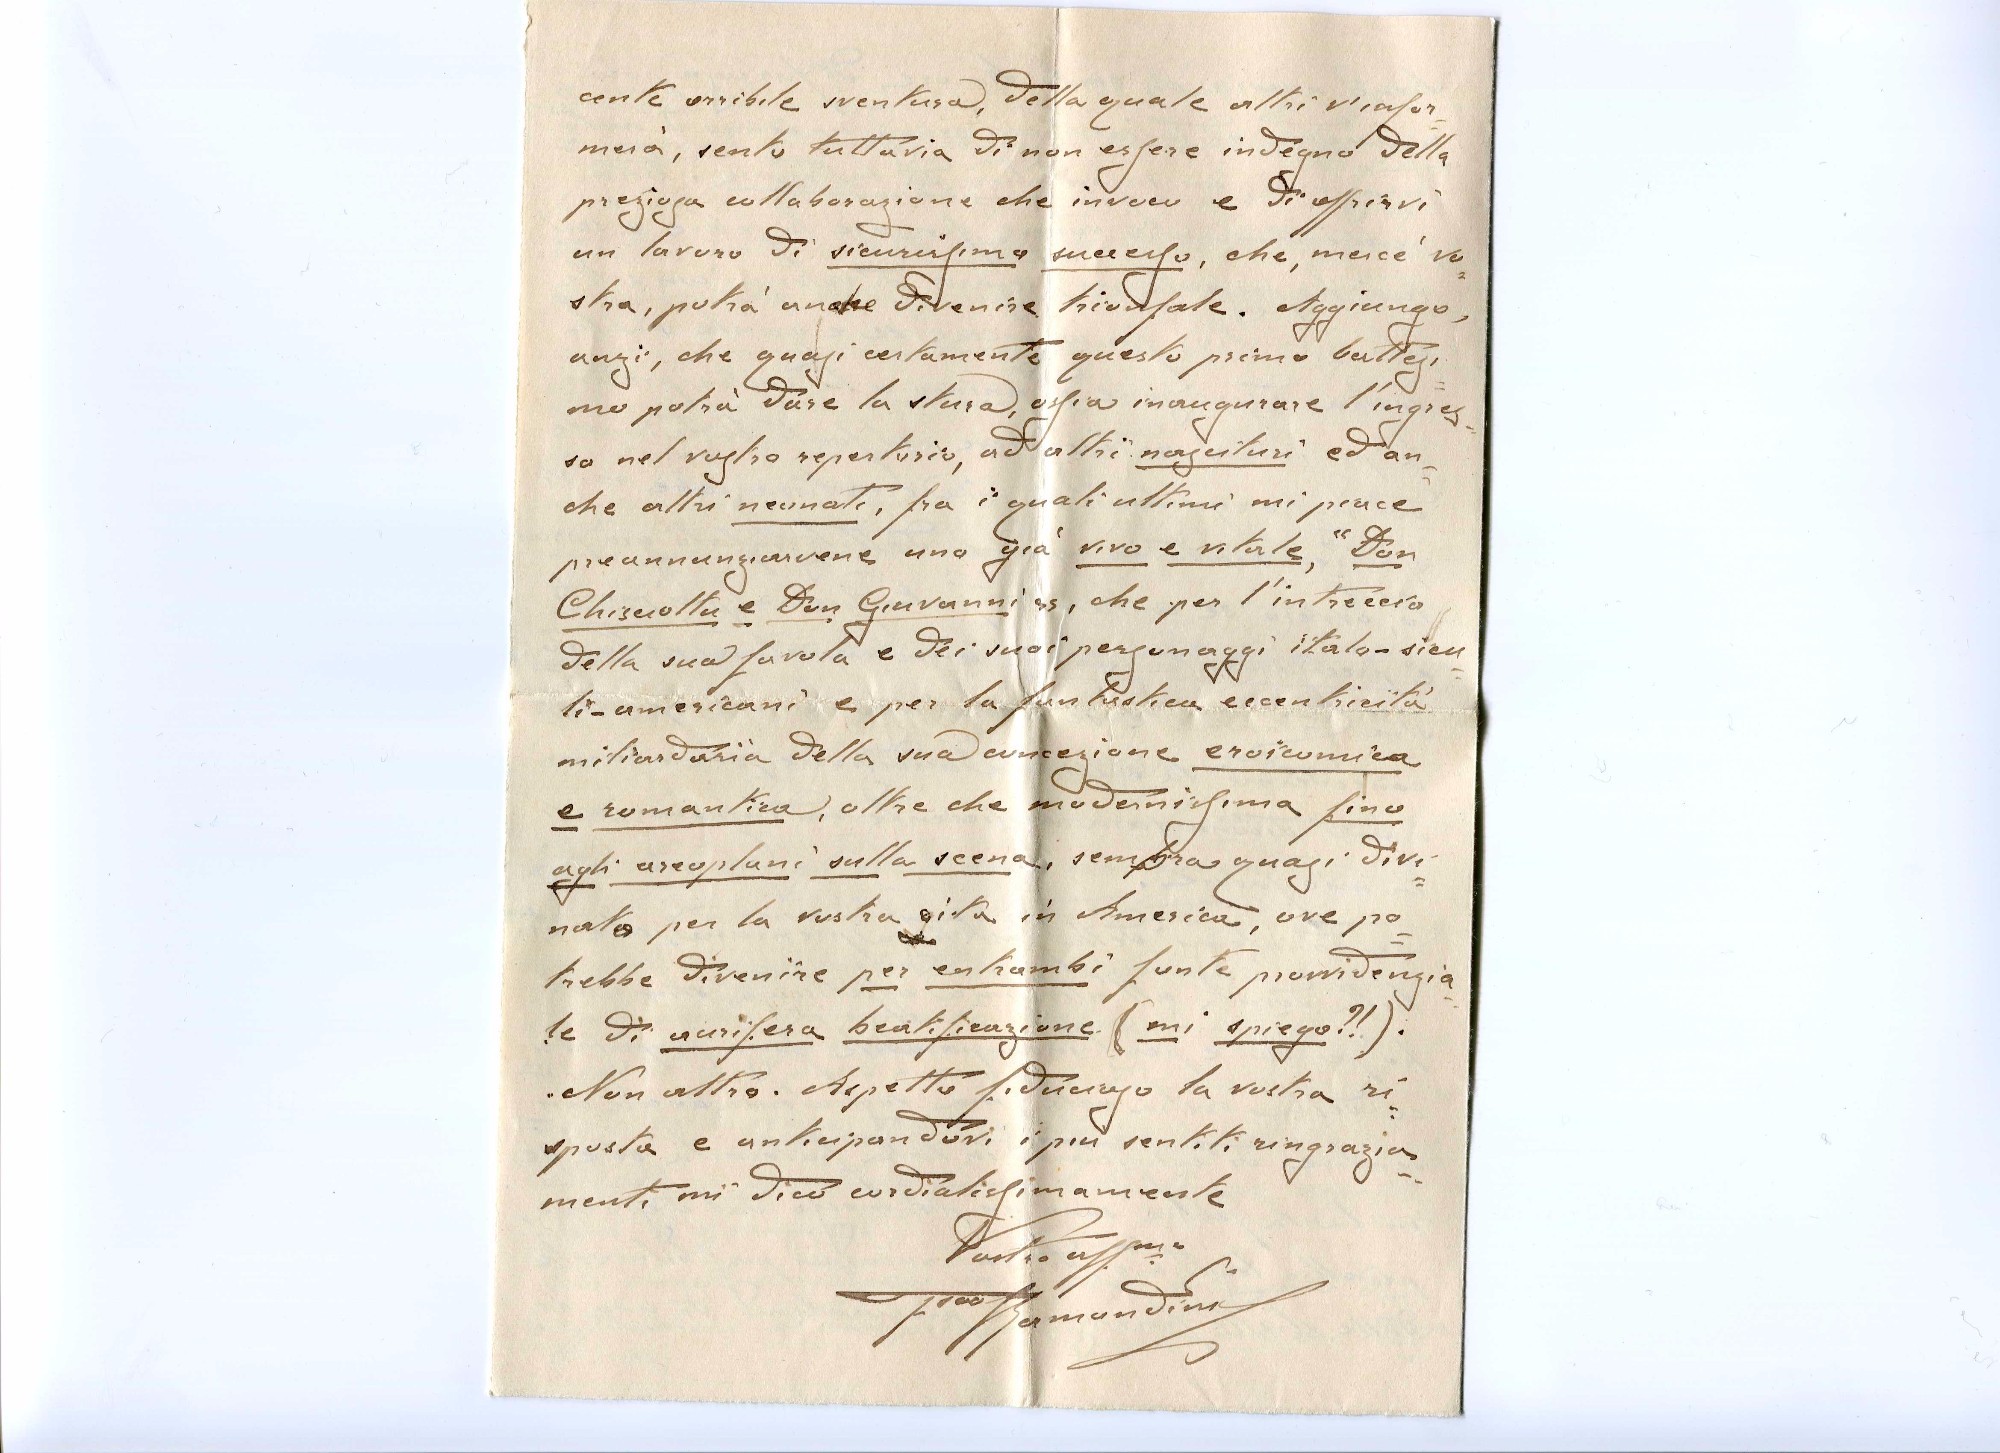 cente orribile sventura, della quale altri v'infor-
merà, sento tuttavia di non essere indegno della
preziosa collaborazione che invoco e di offrirvi
un lavoro di sicurissimo successo, che, mercé vo=
stra, potrà anche divenire trionfale. Aggiungo,
anzi, che quasi certamente questo primo battesi=
mo potrà dare la stura, ossia inaugurare l'ingres=
so nel vostro repertorio, ad altri nascituri ed an=
che altri neonati, fra i quali ultimi mi piace
preannunziarvene uno già vivo e vitale, "Don
Chisciotte e Don Giovanni", che per l'intreccio
della sua favola e dei suoi personaggi italo-sicu=
li-americani e per la fantastica eccentricità
miliardaria della sua concezione eroicomica
e romantica, oltre che modernissima fino
agli areoplani sulla scena, sembra quasi divi=
nato per la vostra gita in America, ove po=
trebbe divenire per entrambi fonte provvidenzia=
le di aurifera beatificazione (mi spiego?!).
Non altro. Aspetto fiducioso la vostra ri=
sposta e anticipandovi i più sentiti ringrazia=
menti mi dico cordialissimamente
Vostro affmo